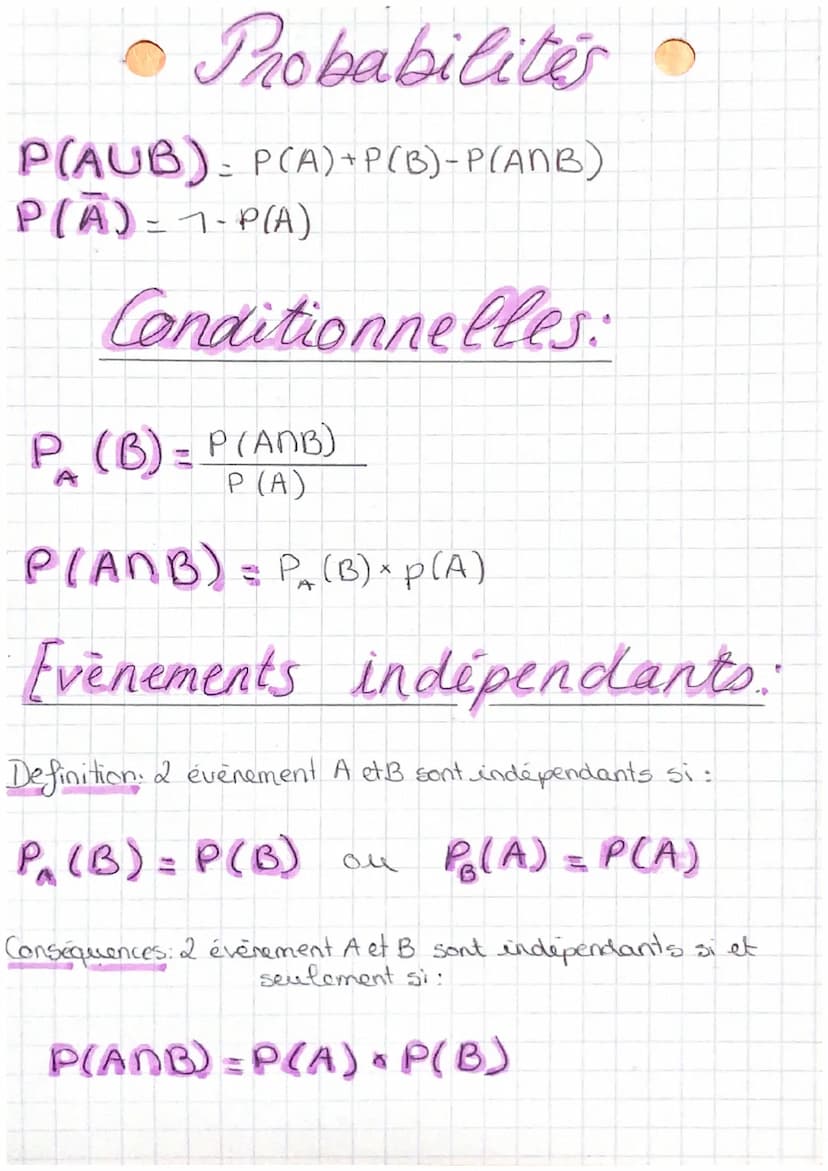 Probabilités
P(A∪B) = P(A)+P(B)-P(A∩B)
P(Ā) = 1-P(A)
Conditionnelles:
P_A (B) = P(A∩B) / P(A)
P(A∩B) = P_A(B) × p(A)
Evènements indépendants:
Definition: 2 évènement A et B sont indépendants si :
P_A (B) = P(B) ou P_B(A) = P(A)
Conséquences: 2 évènement A et B sont indépendants si et
seulement si :
P(A∩B) = P(A) × P(B)